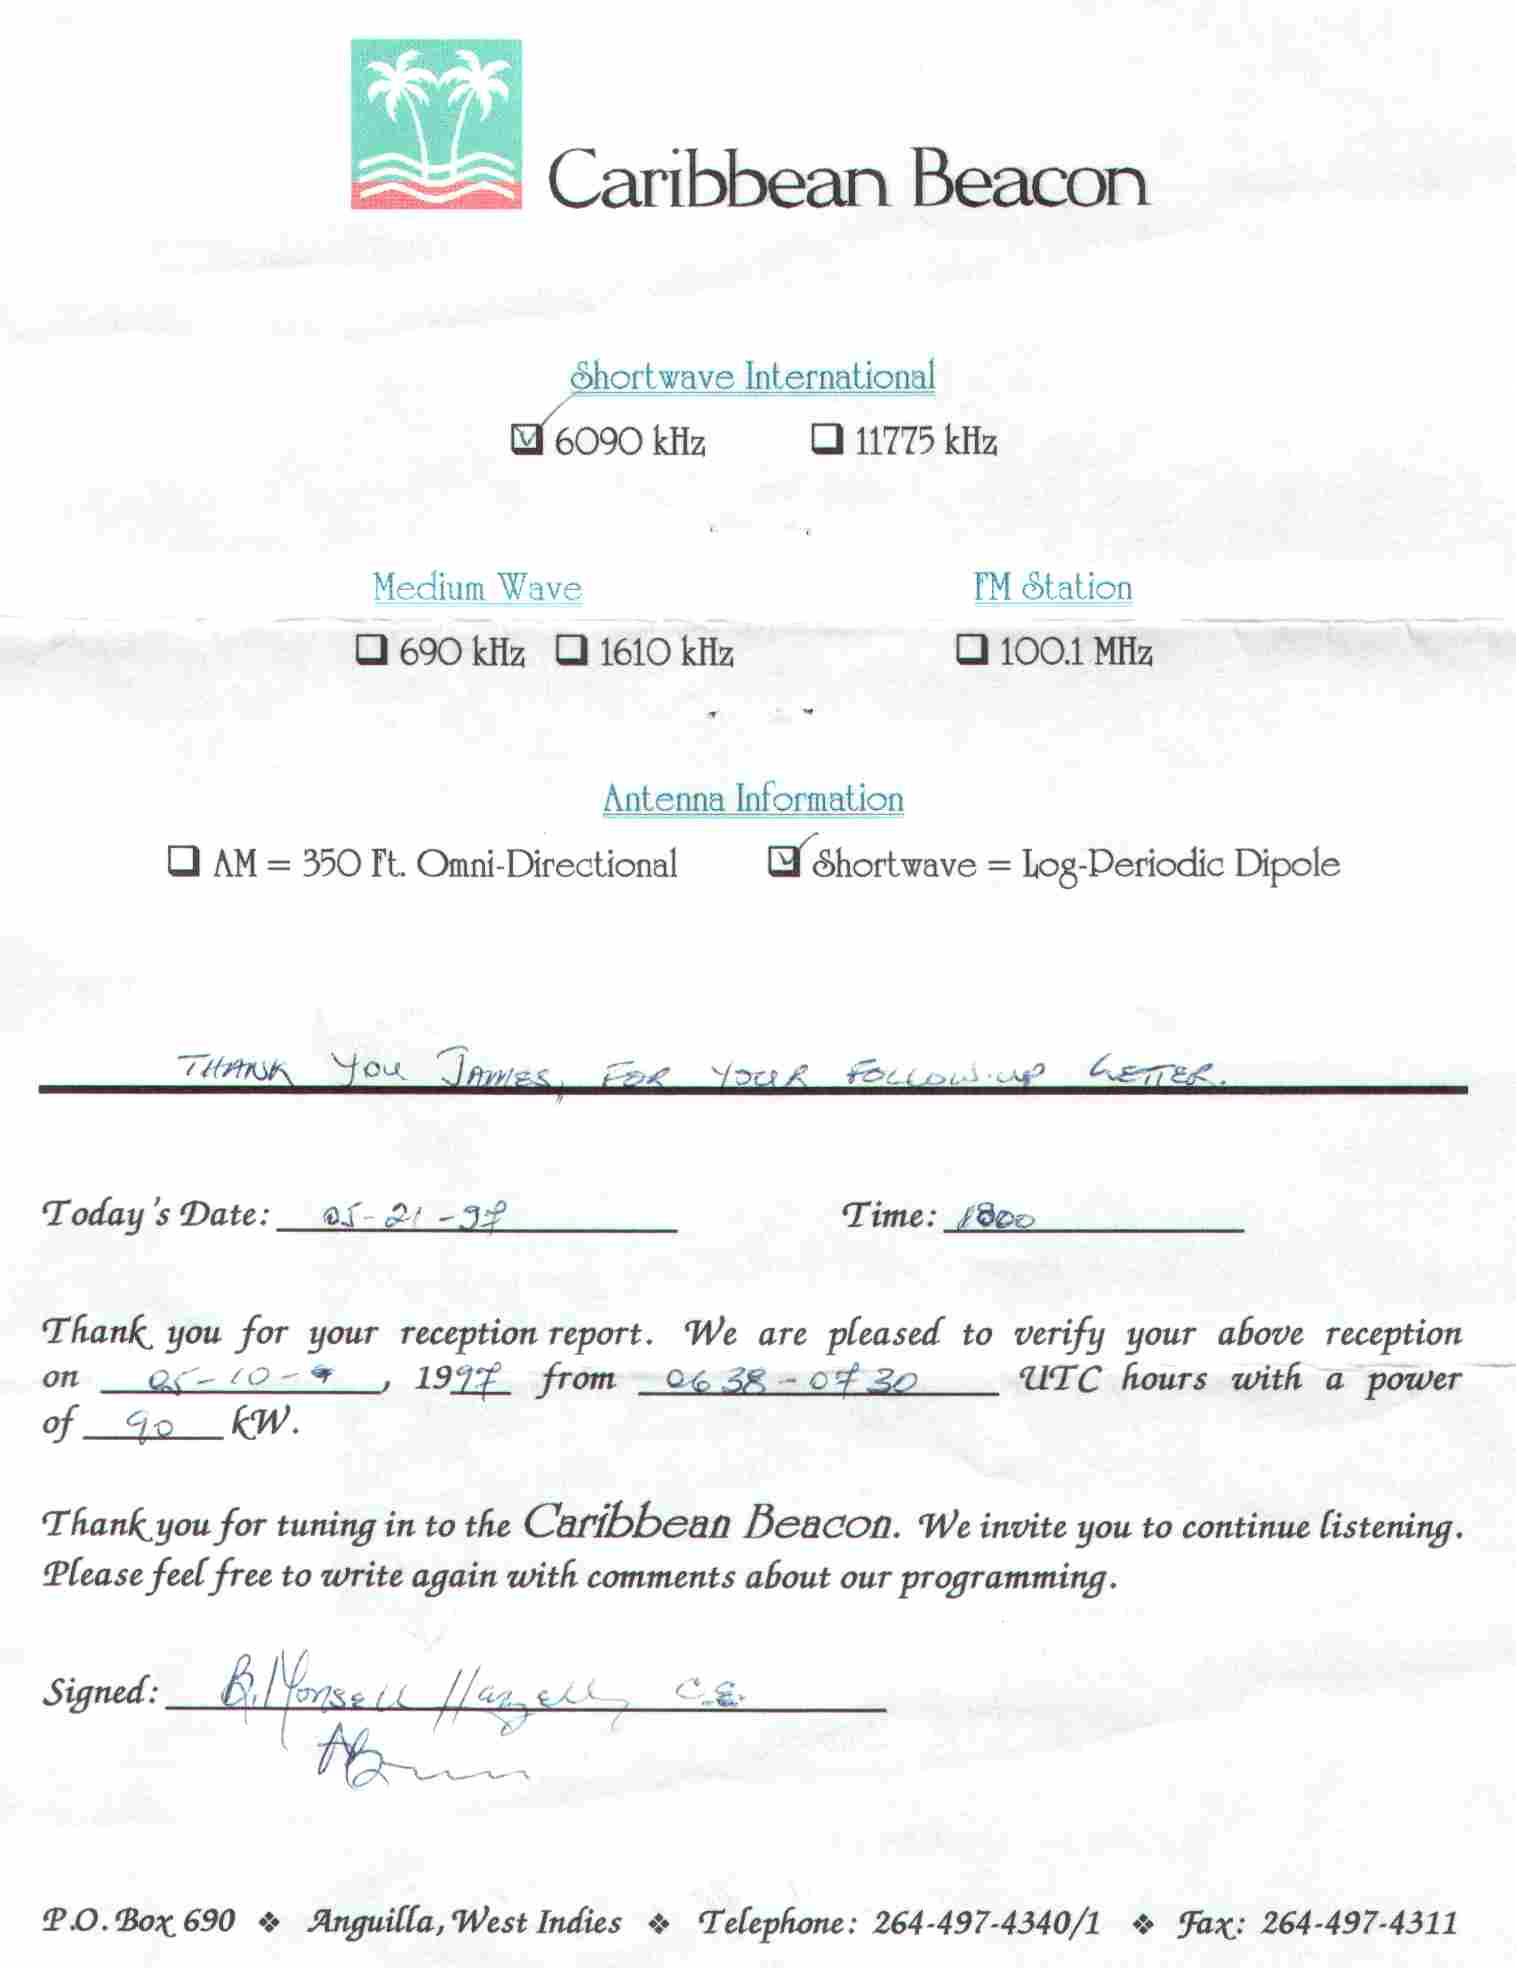 Caribbean Beacon
Shortwave International
6090 kHz 11775 kHz
Medium Wave FM Station
690 kHz 1610 kHz 100.1 MHz
Antenna Information
AM = 350 Ft. Omni-Directional Shortwave = Log-Periodic Dipole
THANK YOU JAMES, FOR YOUR FOLLOW-UP LETTER.
Today's Date: 05-21-97 Time: 1800
Thank you for your reception report. We are pleased to verify your above reception
on 05-10-, 1997 from 0638-0730 UTC hours with a power
of 90 kW.
Thank you for tuning in to the Caribbean Beacon. We invite you to continue listening.
Please feel free to write again with comments about our programming.
Signed: B. Monsell Hazzell C.E.
P.O. Box 690 ❖ Anguilla, West Indies ❖ Telephone: 264-497-4340/1 ❖ Fax: 264-497-4311